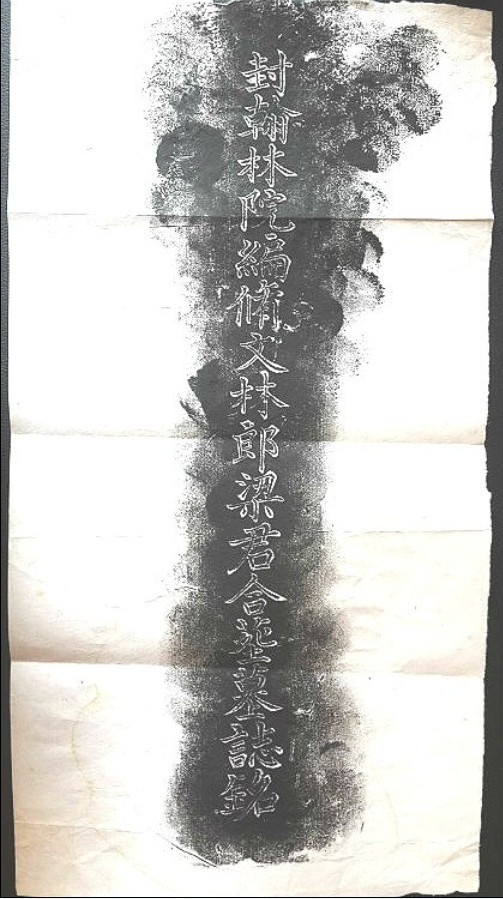 封翰林院編脩文林郎梁君合塟墓誌銘